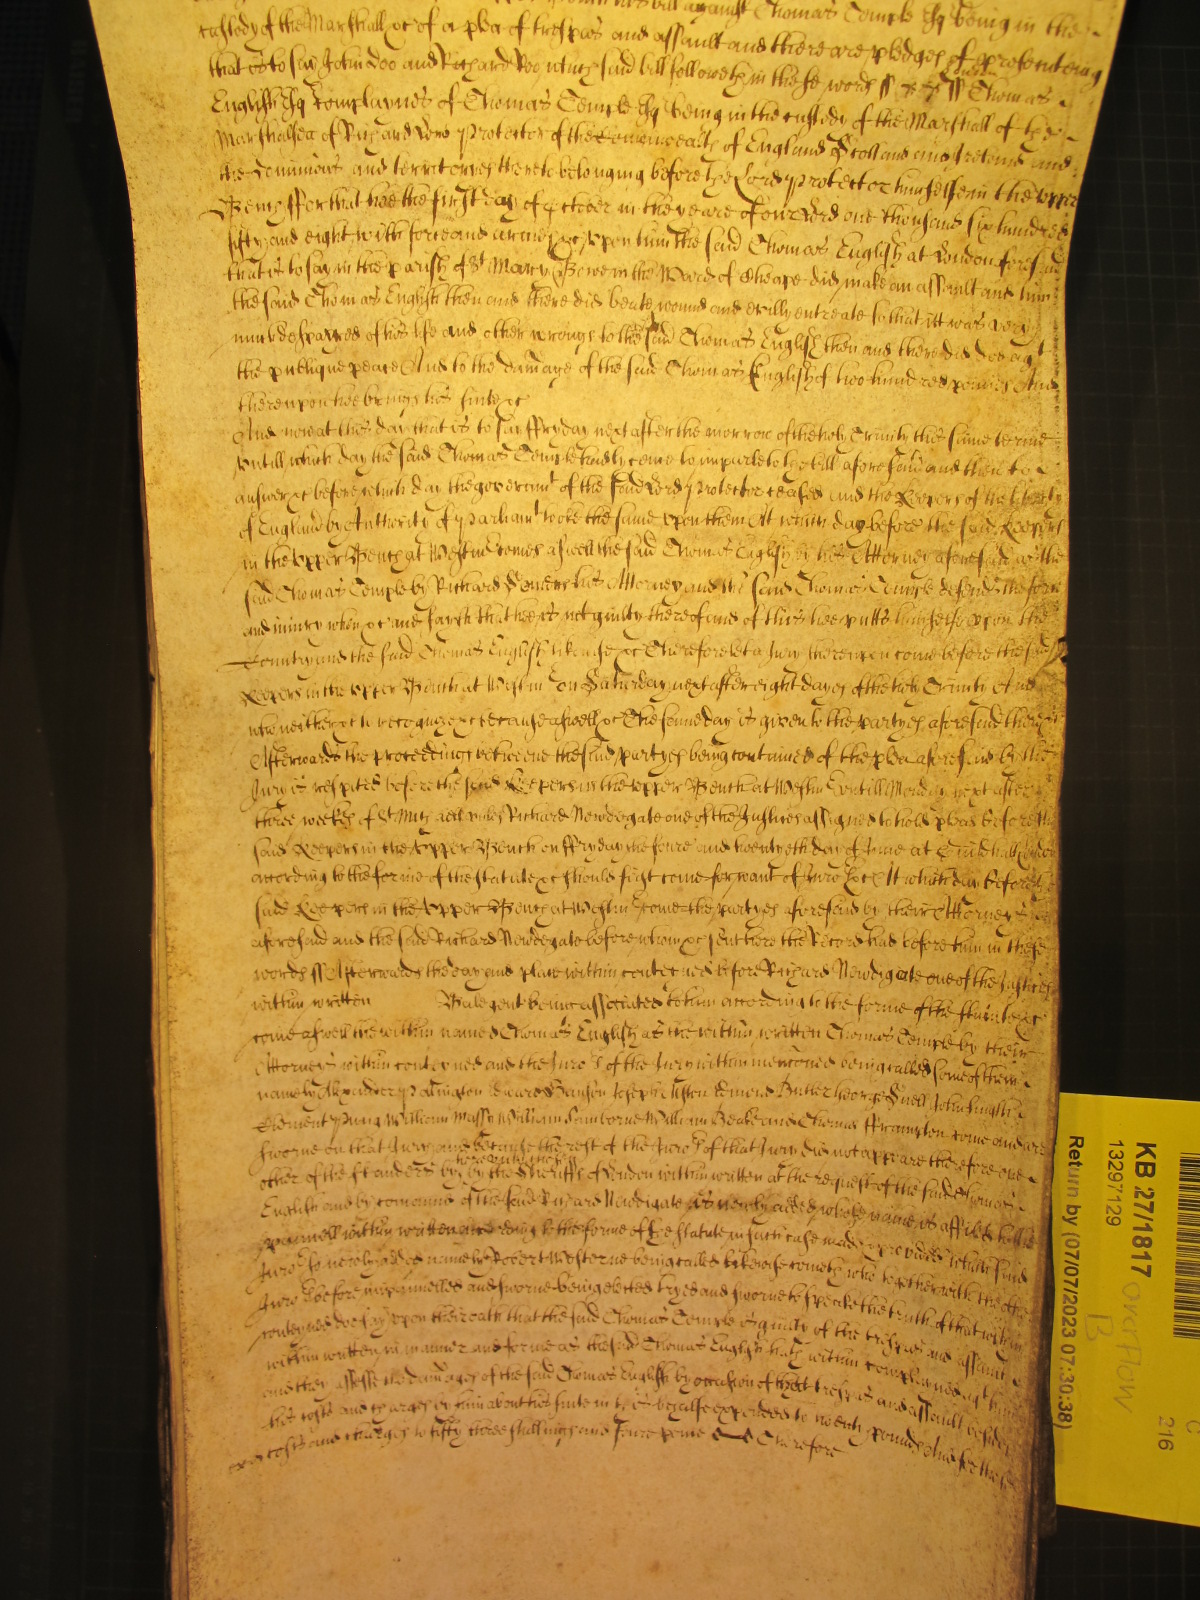 his bill against Thomas Temple Esq being in the
custody of the Marshall &c of a plea of trespas and assault and there are pledges of prosecuteing
that is to say John Doo and Richard Roo which said bill followeth in these words ss London ss Thomas
English Esq Complaynes of Thomas Temple Esq being in the custody of the Marshall of the
Marshalsea of Richard Lord Protector of the Comonwealth of England Scotland and Ireland and
the Dominions and territoryes thereto belonging before the Lord Protector himselfe in the upper
Bench ffor that hee the first day of October in the yeare of our Lord one thousand six hundred
fifty and eight with force and armes &c upon him the said Thomas English at London foresaid
that is to say in the parish of St Mary Bowe in the Ward of Cheape did make an assault and him
the said Thomas English then and there did beate wound and evilly entreate so that itt was very
much despayred of his life and other wrongs to the said Thomas English then and there did doe agt
the publique peace And to the damage of the said Thomas English of two hundred pounds And
thereupon hee brings his suite &c
And now at this day that is to say ffryday next after the morrow of the holy Trinity this same terme
untill which day the said Thomas Temple had lycence to imparle to the bill aforesaid and then to
answer &c before which day the governmt of the said Lord Protector ceased and the Keepers of the liberty
of England by Authority of Parliamt tooke the same upon them Att which day before the said Keepers
in the upper Bench at Westmr comes aswell the said Thomas English by his Attorney aforesaid as the
said Thomas Temple by Richard his Attorney and the said Thomas Temple defends the force
and iniury when &c and saith that hee is not guilty thereof and of this hee putts himselfe upon the
Country and the said Thomas English likewise &c Therefore let a Jury thereupon come before the said
Keepers in the upper Bench at Westmr on Saturday next after eight dayes of the holy Trinity And
who neither &c to recognize &c because aswell &c The same day is given to the partyes aforesaid there &c
Afterwards the proceedings betweene the said partyes being continued of the plea aforesaid by the
Jury is respited before the said Keepers in the upper Bench at Westmr untill Monday next after
three weekes of St Mich unles Richard Newdegate one of the Justices assigned to hold pleas before the
said Keepers in the upper Bench on ffryday the foure and twentyeth day of June at Guildhall London
according to the forme of the statute &c should first come for want of Juro &c Att which day before the
said Keepers in the upper Bench at Westmr come the partyes aforesaid by their Attorneyes
aforesaid and the said Richard Newdegate before whom &c sent here the Record had before him in these
words ss Afterwards the day and place within conteyned before Richard Newdigate one of the Justices
within written Balegent being associated to him according to the forme of the statute &c
come aswell the within named Thomas English as the within written Thomas Temple by their
Attorneys within conteyned and the Juro of the Jury within mencioned being called some of them
namely Alexander Edward Joseph Edmond Butler George Snell John
Clement William William William and Thomas fframpton come and are
sworne on that Jury and because the rest of the Juro of that Jury did not appeare therefore one
other of the standers by by the Sheriffs of London within written at the request of the said Thomas
English and by comand of the said Richard Newdigate is newly added whose name is affiled to the
pannell within written according to the forme of the statute in such case made & provided which said
Juro so newly added namely Robert Westerne being called likewise cometh who together with the other
Juro before impannelled and sworne being elected tryed and sworne to speake the truth of that within
conteyned doe say upon their oath that the said Thomas Temple is guilty of the trespas and assault
within written in manner and forme as the said Thomas English hath within complayned agt him
and they assesse the damages of the said Thomas English by occasion of that trespas and assault besides
his costs and charges by him about his suite in this behalfe expended to pounds And for those
costs and charges to fifty three shillings and foure pence Therefore
KB 27/1817
13297129
Return by (07/07/2023 07:30:38)
overflow
B
216